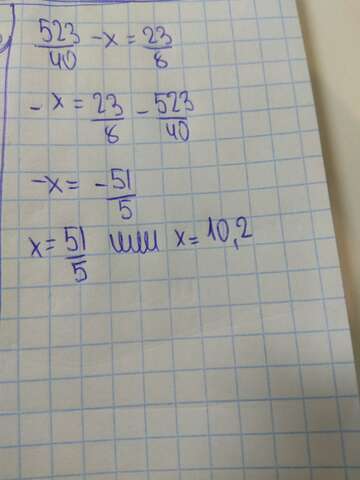 523/40 - x = 23/8
- x = 23/8 - 523/40
-x = - 51/5
x = 51/5 или x = 10,2